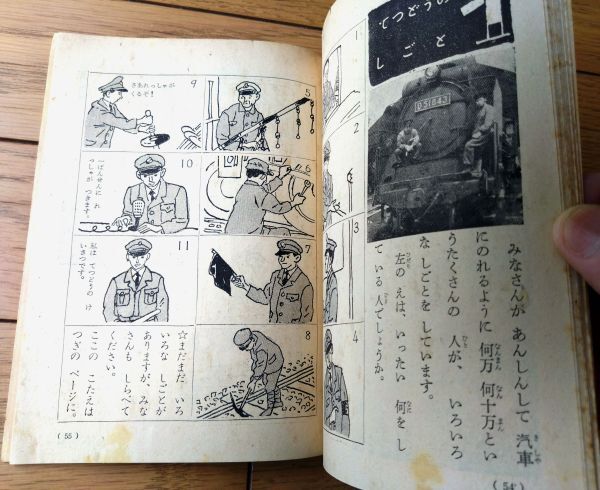 てつどうの
しごと 1
D51843
みなさんが あんしんして 汽車
にのれるように 何万 何十万とい
うたくさんの 人が、いろいろ
なしごとを しています。
左の えは、いったい 何を し
ている 人でしょうか。
(54)
1
2
3
4
5
6
7
8
9
さあれっしゃが
くるぞ!
10
一ばんせんに れ
っしゃが つきます。
11
私は てつどうの け
いさつです。
☆まだまだ いろ
いろな しごとが
ありますが、みな
さんも しらべて
ください。
ここの こたえは
つぎの ページに。
(55)